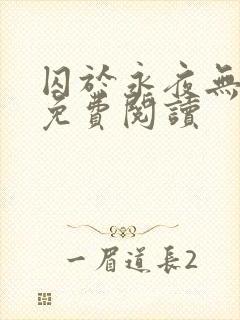 囚於永夜無
免費閱讀
一眉道長2